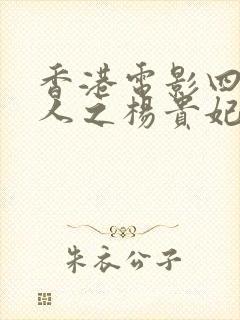 香港電影四
人之楊貴妃
朱衣公子